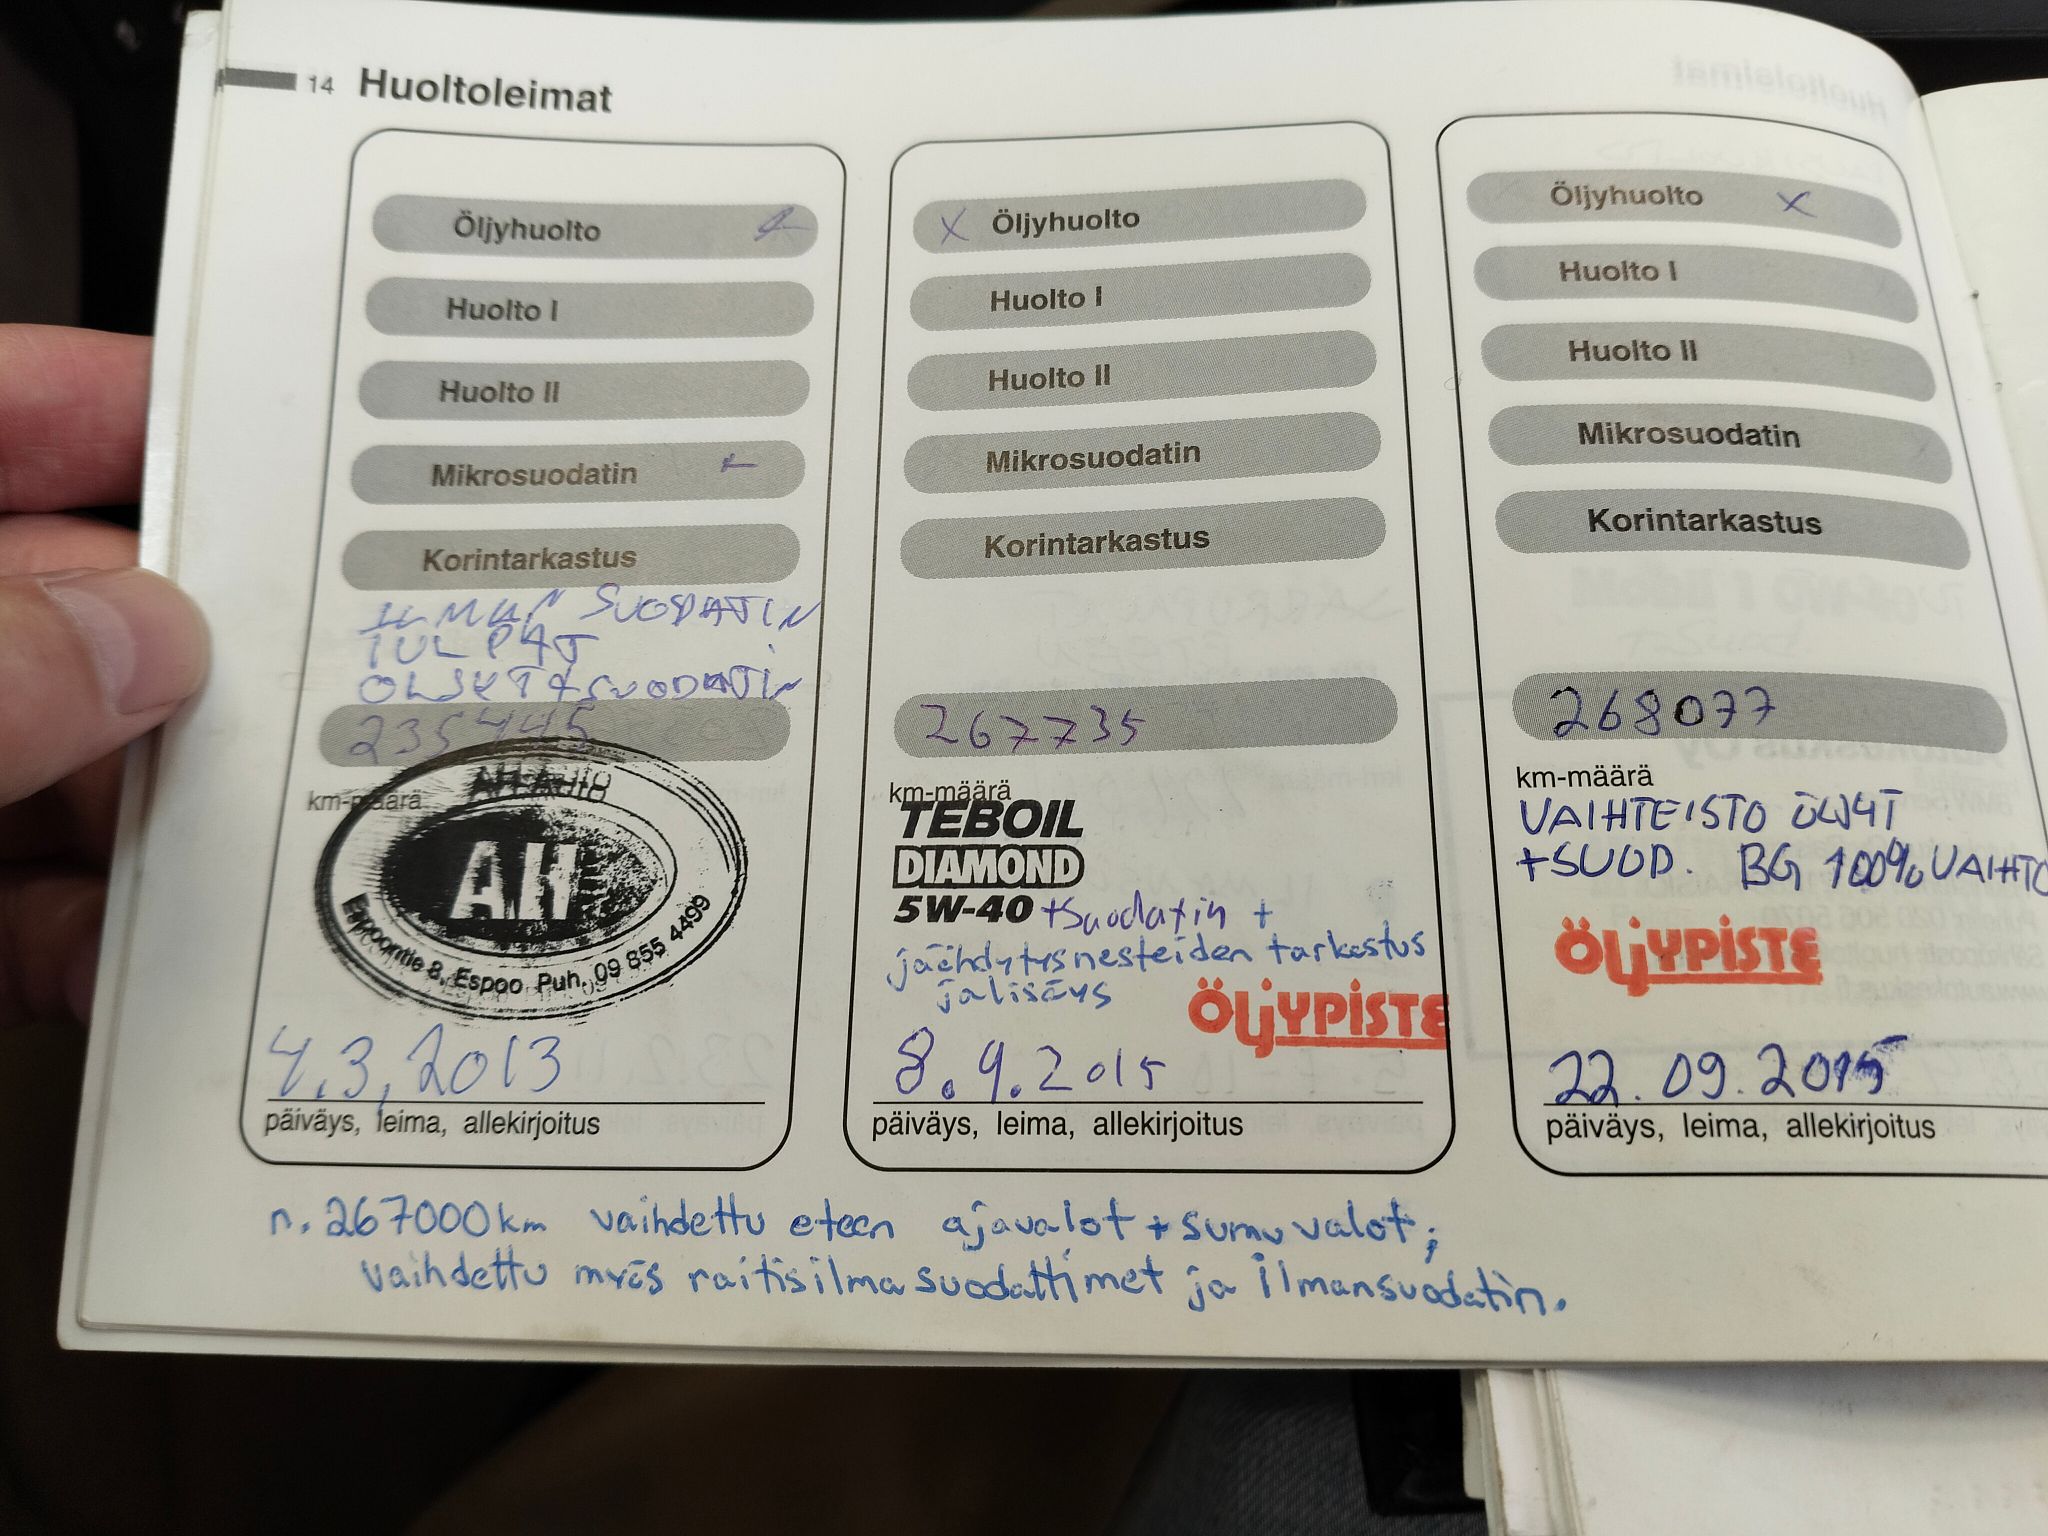 14 Huoltoleimat
Öljyhuolto
Huolto I
Huolto II
Mikrosuodatin
Korintarkastus
ILMAN SUODATIN
TULPAT
SUODATIN
235445
km-määrä
AH
Espoontie 8, Espoo Puh. 09 855 4499
4.3.2013
päiväys, leima, allekirjoitus
X Öljyhuolto
Huolto I
Huolto II
Mikrosuodatin
Korintarkastus
267735
km-määrä
TEBOIL
DIAMOND
5W-40 +suodatin +
jäähdytysnesteiden tarkastus
ja lisäys
ÖLJYPISTE
8.9.2015
päiväys, leima, allekirjoitus
Öljyhuolto X
Huolto I
Huolto II
Mikrosuodatin
Korintarkastus
268077
km-määrä
VAIHTEISTO ÖLJYT
+SUOD. BG 100% VAIHTO
ÖLJYPISTE
22.09.2015
päiväys, leima, allekirjoitus
n. 267000km vaihdettu eteen ajovalot + sumuvalot;
vaihdettu myös raitisilmasuodattimet ja ilmansuodatin.